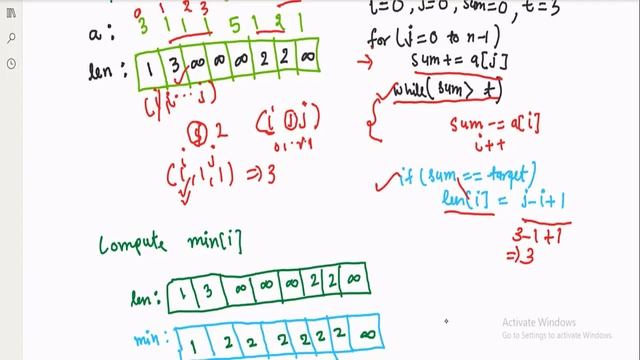 i=0, j=0, sum=0, t=3
0 1 2 3
a: 3 1 1 1 5 1 2 1
for (j=0 to n-1)
sum += a[j]
len: 1 3 ∞ ∞ ∞ 2 2 ∞
while(sum > t)
(i, i... j)
2 (i j j)
sum -= a[i]
i++
i j
(1, 1, 1) => 3
if (sum == target)
len[i] = j-i+1
3-1+1
=> 3
Compute min[i]
len: 1 3 ∞ ∞ ∞ 2 2 ∞
min: 1 2 2 2 2 2 2 ∞
Activate Windows
Go to Settings to activate Windows.